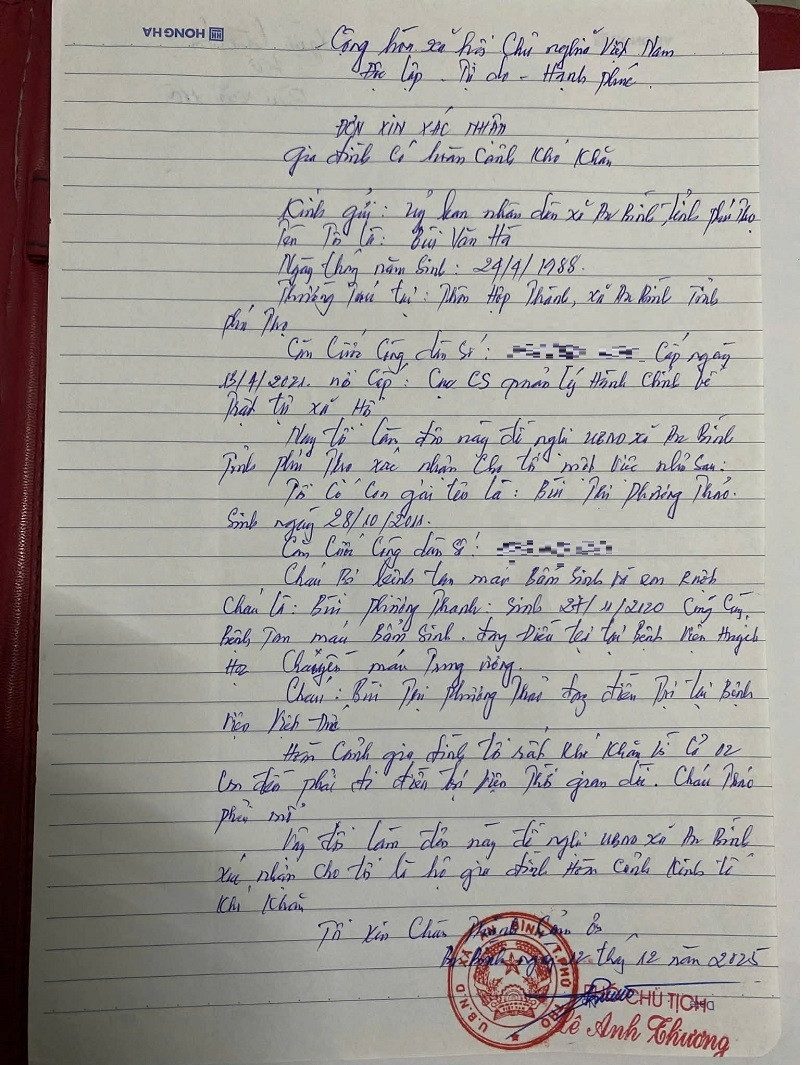 HONG HA
Cộng hòa xã hội Chủ nghĩa Việt Nam
Độc lập - Tự do - Hạnh phúc.
ĐƠN XIN XÁC NHẬN
Gia đình có hoàn cảnh khó khăn
Kính gửi: Uỷ ban nhân dân xã An Bình tỉnh phú Thọ
Tên Tôi là: Bùi Văn Hà
Ngày tháng năm sinh: 24/4/1988.
Thường Trú tại: Thôn Hợp Thành, xã An Bình Tỉnh
phú Thọ
Căn Cước Công dân Số: Cấp ngày
13/4/2021. nơi Cấp: Cục CS quản lý Hành Chính về
Trật tự xã Hội
Nay tôi làm đơn này đề nghị UBND xã An Bình
Tỉnh phú Thọ xác nhận cho tôi một việc như sau:
Tôi có con gái tên là: Bùi Thị Phương Thảo.
Sinh ngày 28/10/2011.
Căn Cước Công dân Số:
Cháu Bị bệnh tan máu Bẩm Sinh và em Ruột
Cháu là: Bùi phương Thanh: Sinh 27/11/2020 Cũng
Bệnh Tan máu Bẩm Sinh. đang Điều trị tại Bệnh Viện Huyết
Học Chuyền máu Trung ương.
Cháu: Bùi Thị Phương Thảo đang điều Trị tại Bệnh
Viện Việt-Đức
Hoàn Cảnh gia đình tôi rất khó khăn Vì Cả 02
con đều phải đi điều trị Viện Thời gian dài. Cháu Thảo
phải mổ
Vậy tôi làm đơn này đề nghị UBND xã An Bình
xác nhận cho tôi là hộ gia đình Hoàn Cảnh Kinh tế
Khó Khăn
Tôi xin Chân Thành Cảm ơn
An Bình ngày 12 tháng 12 năm 2025
U.B.N.D XÃ AN BÌNH T. PHÚ THỌ
CHỦ TỊCH
Lê Anh Thương